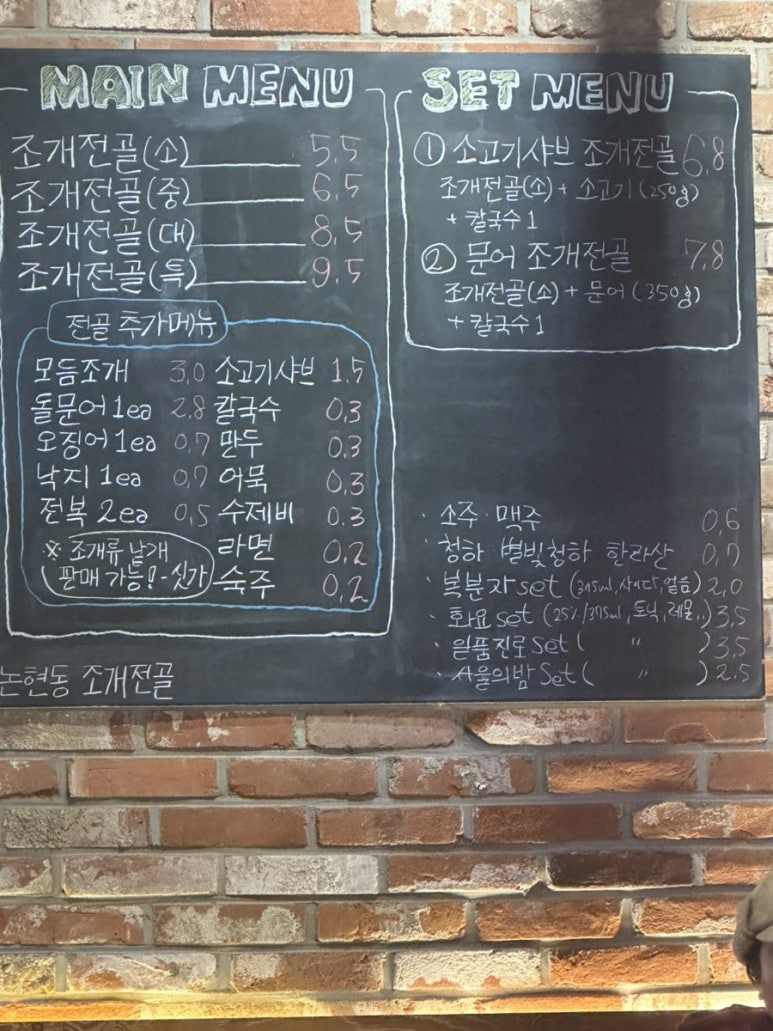 MAIN MENU
조개전골(소) 5.5
조개전골(중) 6.5
조개전골(대) 8.5
조개전골(특) 9.5
전골 추가메뉴
모듬조개 3.0 소고기샤브 1.5
돌문어 1ea 2.8 칼국수 0.3
오징어 1ea 0.7 만두 0.3
낙지 1ea 0.7 어묵 0.3
전복 2ea 0.5 수제비 0.3
※ 조개류 낱개 라면 0.2
판매 가능! - 싯가 숙주 0.2
논현동 조개전골
SET MENU
① 소고기샤브 조개전골 6.8
조개전골(소) + 소고기 (250g)
+ 칼국수 1
② 문어 조개전골 7.8
조개전골(소) + 문어 (350g)
+ 칼국수 1
· 소주 · 맥주 0.6
· 청하 별빛청하 한라산 0.7
· 복분자 set (375ml, 사이다, 얼음) 2.0
· 화요 set (25%/375ml, 토닉, 레몬..) 3.5
· 일품진로 set ( " ) 3.5
· 서울의밤 Set ( " ) 2.5